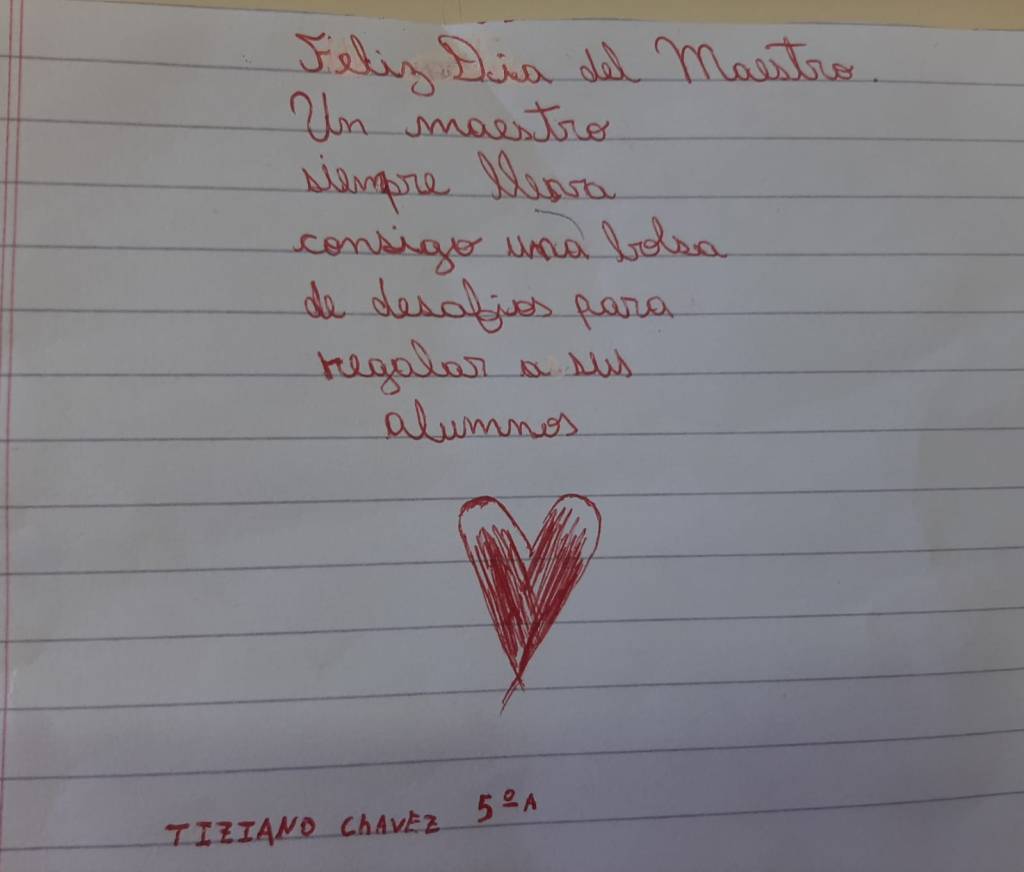 Feliz Dia del Maestro.
Un maestro
siempre lleva
consigo una bolsa
de desafios para
regalar a sus
alumnos
TIZIANO ChAVEZ 5ºA